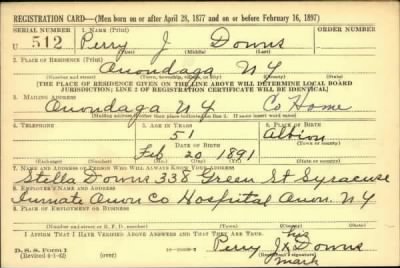 REGISTRATION CARD—(Men born on or after April 28, 1877 and on or before February 16, 1897)
SERIAL NUMBER 1. NAME (Print) ORDER NUMBER
U 512 Perry J Downs
(First) (Middle) (Last)
2. PLACE OF RESIDENCE (Print)
Onondaga N Y
(Number and street) (Town, township, village, or city) (County) (State)
[THE PLACE OF RESIDENCE GIVEN ON THE LINE ABOVE WILL DETERMINE LOCAL BOARD
JURISDICTION; LINE 2 OF REGISTRATION CERTIFICATE WILL BE IDENTICAL]
3. MAILING ADDRESS
Onondaga N Y Co Home
[Mailing address if other than place indicated on line 2. If same insert word same]
4. TELEPHONE 5. AGE IN YEARS 6. PLACE OF BIRTH
51 Albion
DATE OF BIRTH (Town or county)
Feb 20 1891
(Exchange) (Number) (Mo.) (Day) (Yr.) (State or country)
7. NAME AND ADDRESS OF PERSON WHO WILL ALWAYS KNOW YOUR ADDRESS
Stella Downs 338 Green St Syracuse
8. EMPLOYER'S NAME AND ADDRESS
Inmate Onon Co Hospital Onon. N.Y
9. PLACE OF EMPLOYMENT OR BUSINESS
(Number and street or R. F. D. number) (Town) (County) (State)
I AFFIRM THAT I HAVE VERIFIED ABOVE ANSWERS AND THAT THEY ARE TRUE.
his
D. S. S. Form 1 Perry J X Downs
(Revised 4-1-42) (over) mark